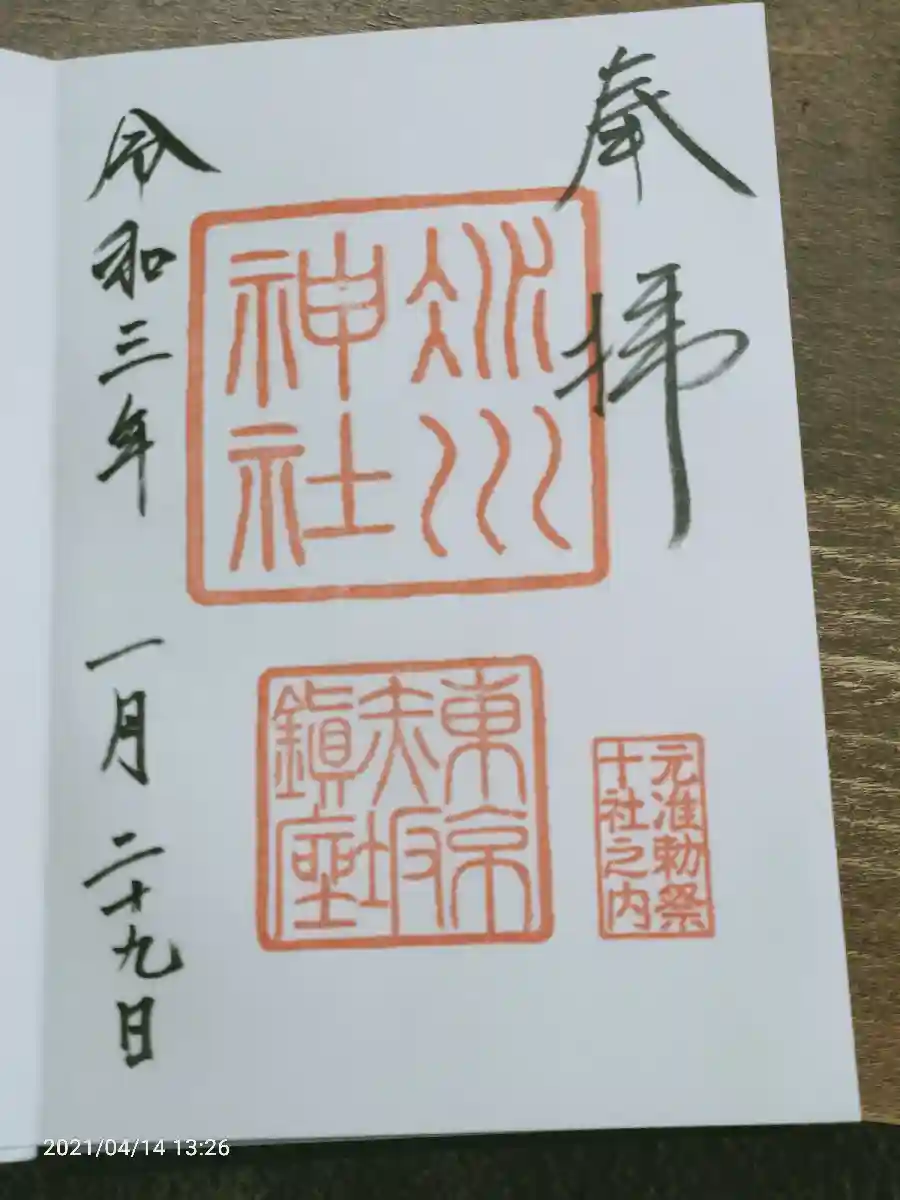 奉拝
氷川
神社
東京
赤坂
鎮座
元准勅祭
十社之内
令和三年 一月二十九日
2021/04/14 13:26